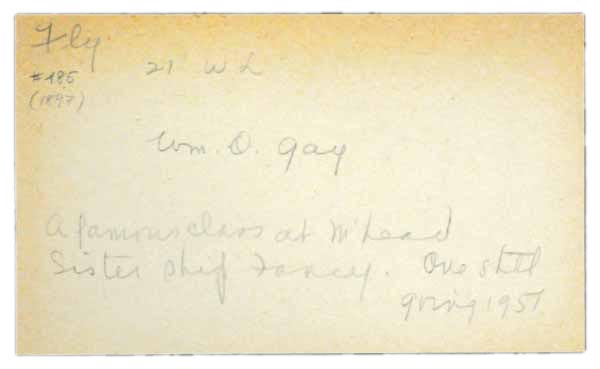 Fly
21 W L
#485
(1897)
Wm. O. Gay
A famous class at M'head
Sister ship Fancy. One still
going 1951